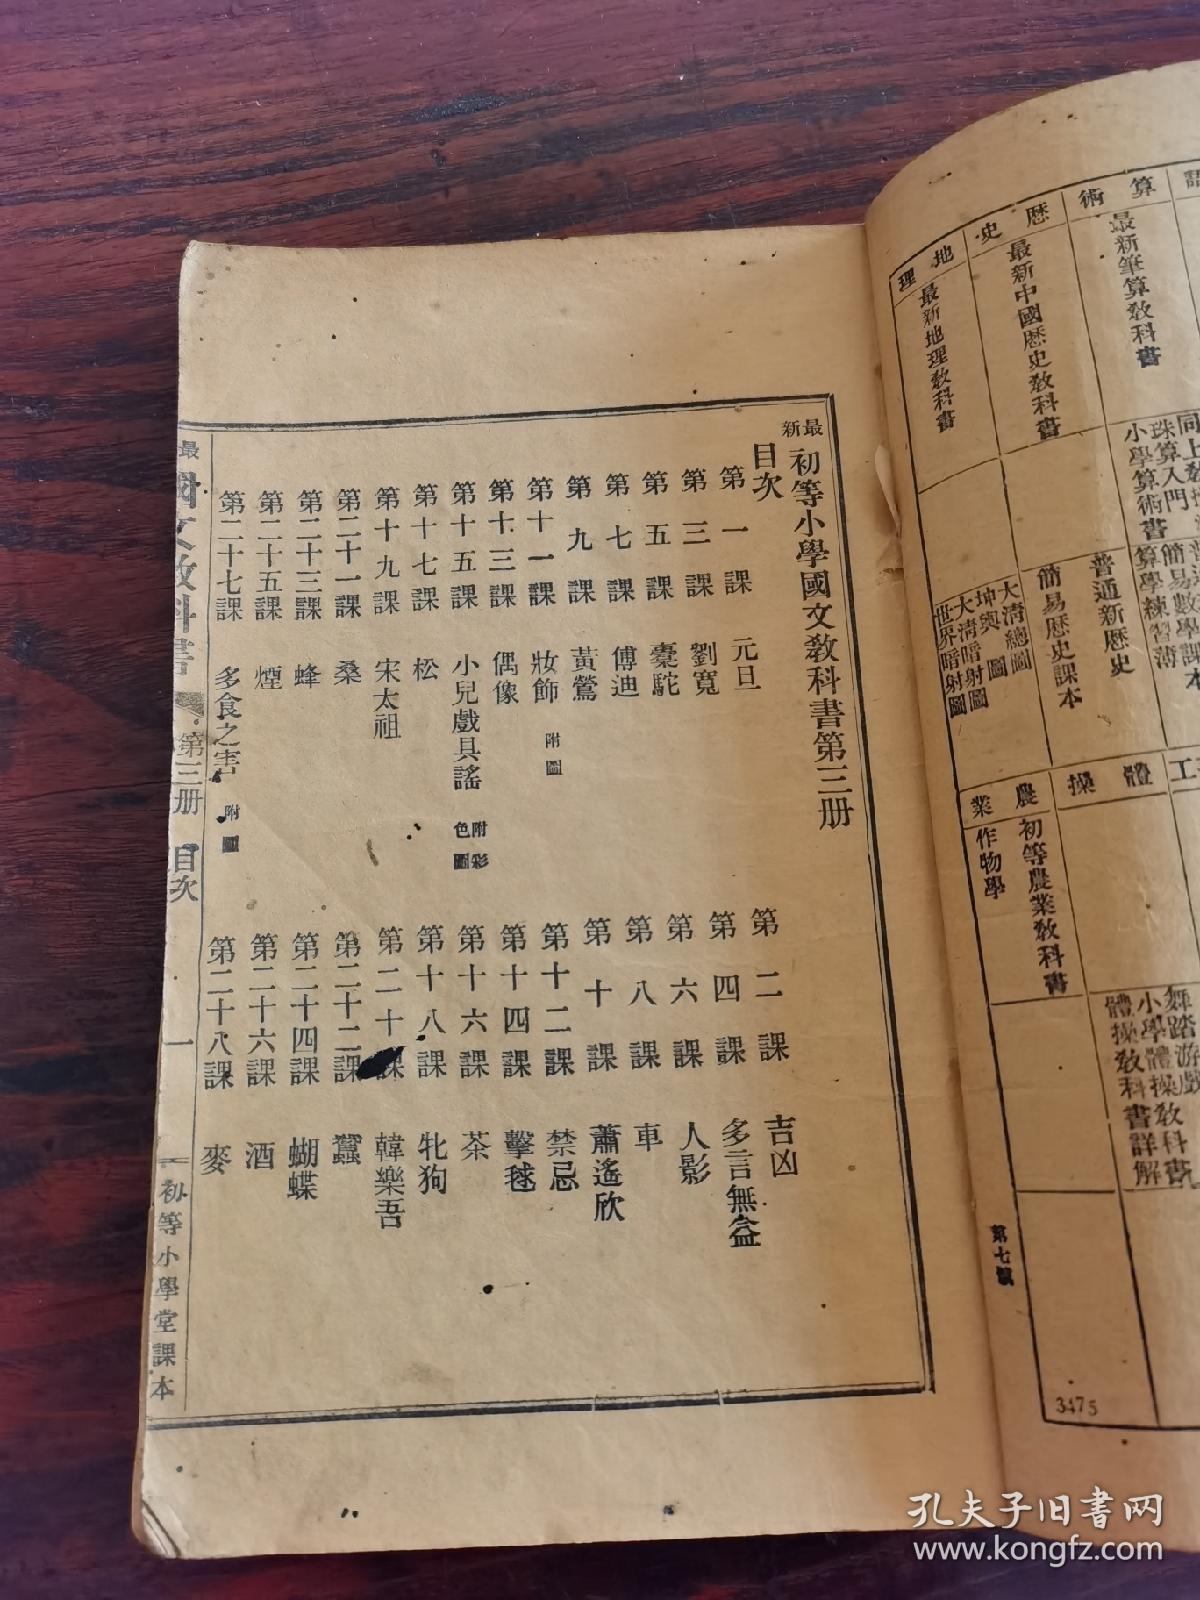 最新
初等小學國文教科書第三册
目次
第一課 元旦
第二課 吉凶
第三課 劉寬
第四課 多言無益
第五課 橐駝
第六課 人影
第七課 傅迪
第八課 車
第九課 黃鶯
第十課 蕭遙欣
第十一課 妝飾 附圖
第十二課 禁忌
第十三課 偶像
第十四課 擊毬
第十五課 小兒戲具謠 附彩色圖
第十六課 茶
第十七課 松
第十八課 牝狗
第十九課 宋太祖
第二十課 韓樂吾
第二十一課 桑
第二十二課 蠶
第二十三課 蜂
第二十四課 蝴蝶
第二十五課 煙
第二十六課 酒
第二十七課 多食之害 附圖
第二十八課 麥
最
國文教科書 第三册 目次 一 初等小學堂課本
算術
最新筆算教科書
珠算入門
小學算術書
簡易數學課本
算學練習薄
歷史
最新中國歷史教科書
普通新歷史
簡易歷史課本
地理
最新地理教科書
大清總圖
坤輿圖
大清暗射圖
世界暗射圖
工
體操
舞踏游戲
小學體操教科書
體操教科書詳解
農業
初等農業教科書
作物學
第七號
3475
孔夫子旧书网
www.kongfz.com